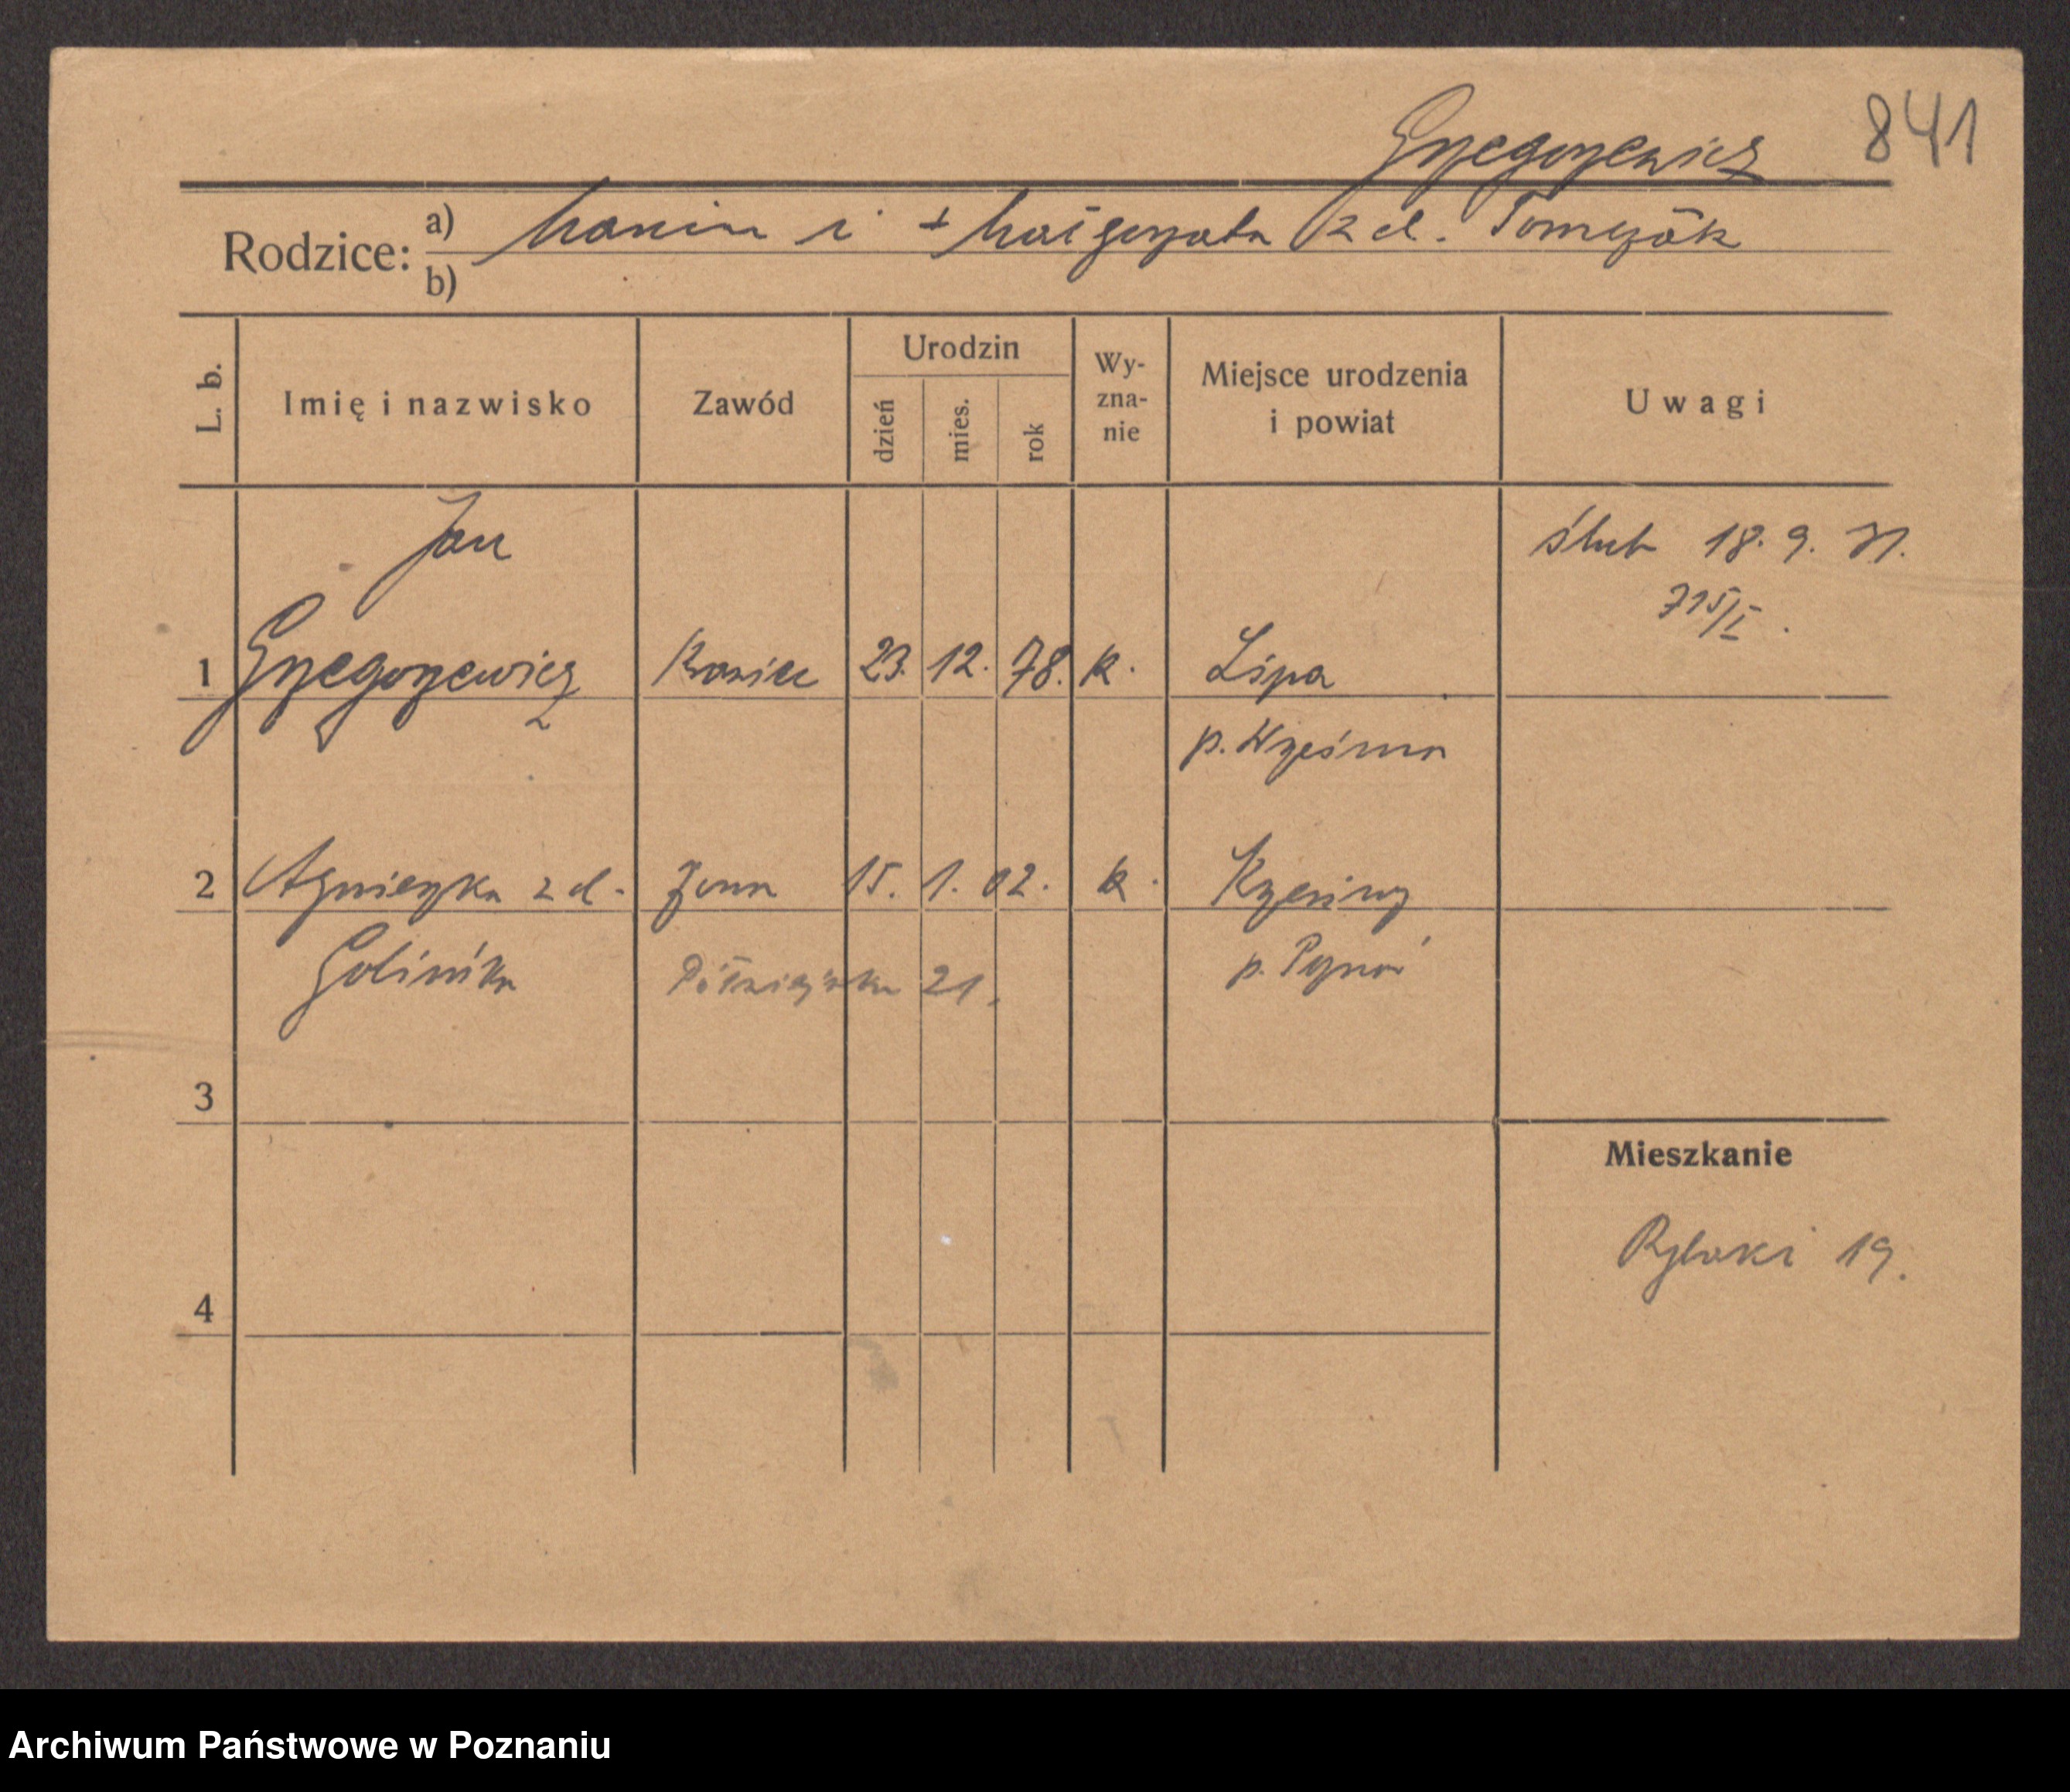 841
Grzegorzewicz
Rodzice: a) Marcin i + Małgorzata z d. Tomczak
b)
L. b. Imię i nazwisko Zawód Urodzin dzień mies. rok Wy-zna-nie Miejsce urodzenia i powiat Uwagi
Jan ślub 18. 9. 31.
715/I.
1 Grzegorzewicz 23. 12. 78. k. Lipa
p. Września
2 Agnieszka z d. żona 15. 1. 02. k. Krzesiny
Golińska Półwiejska 21. p. Poznań
3
Mieszkanie
Rybaki 19.
4
Archiwum Państwowe w Poznaniu